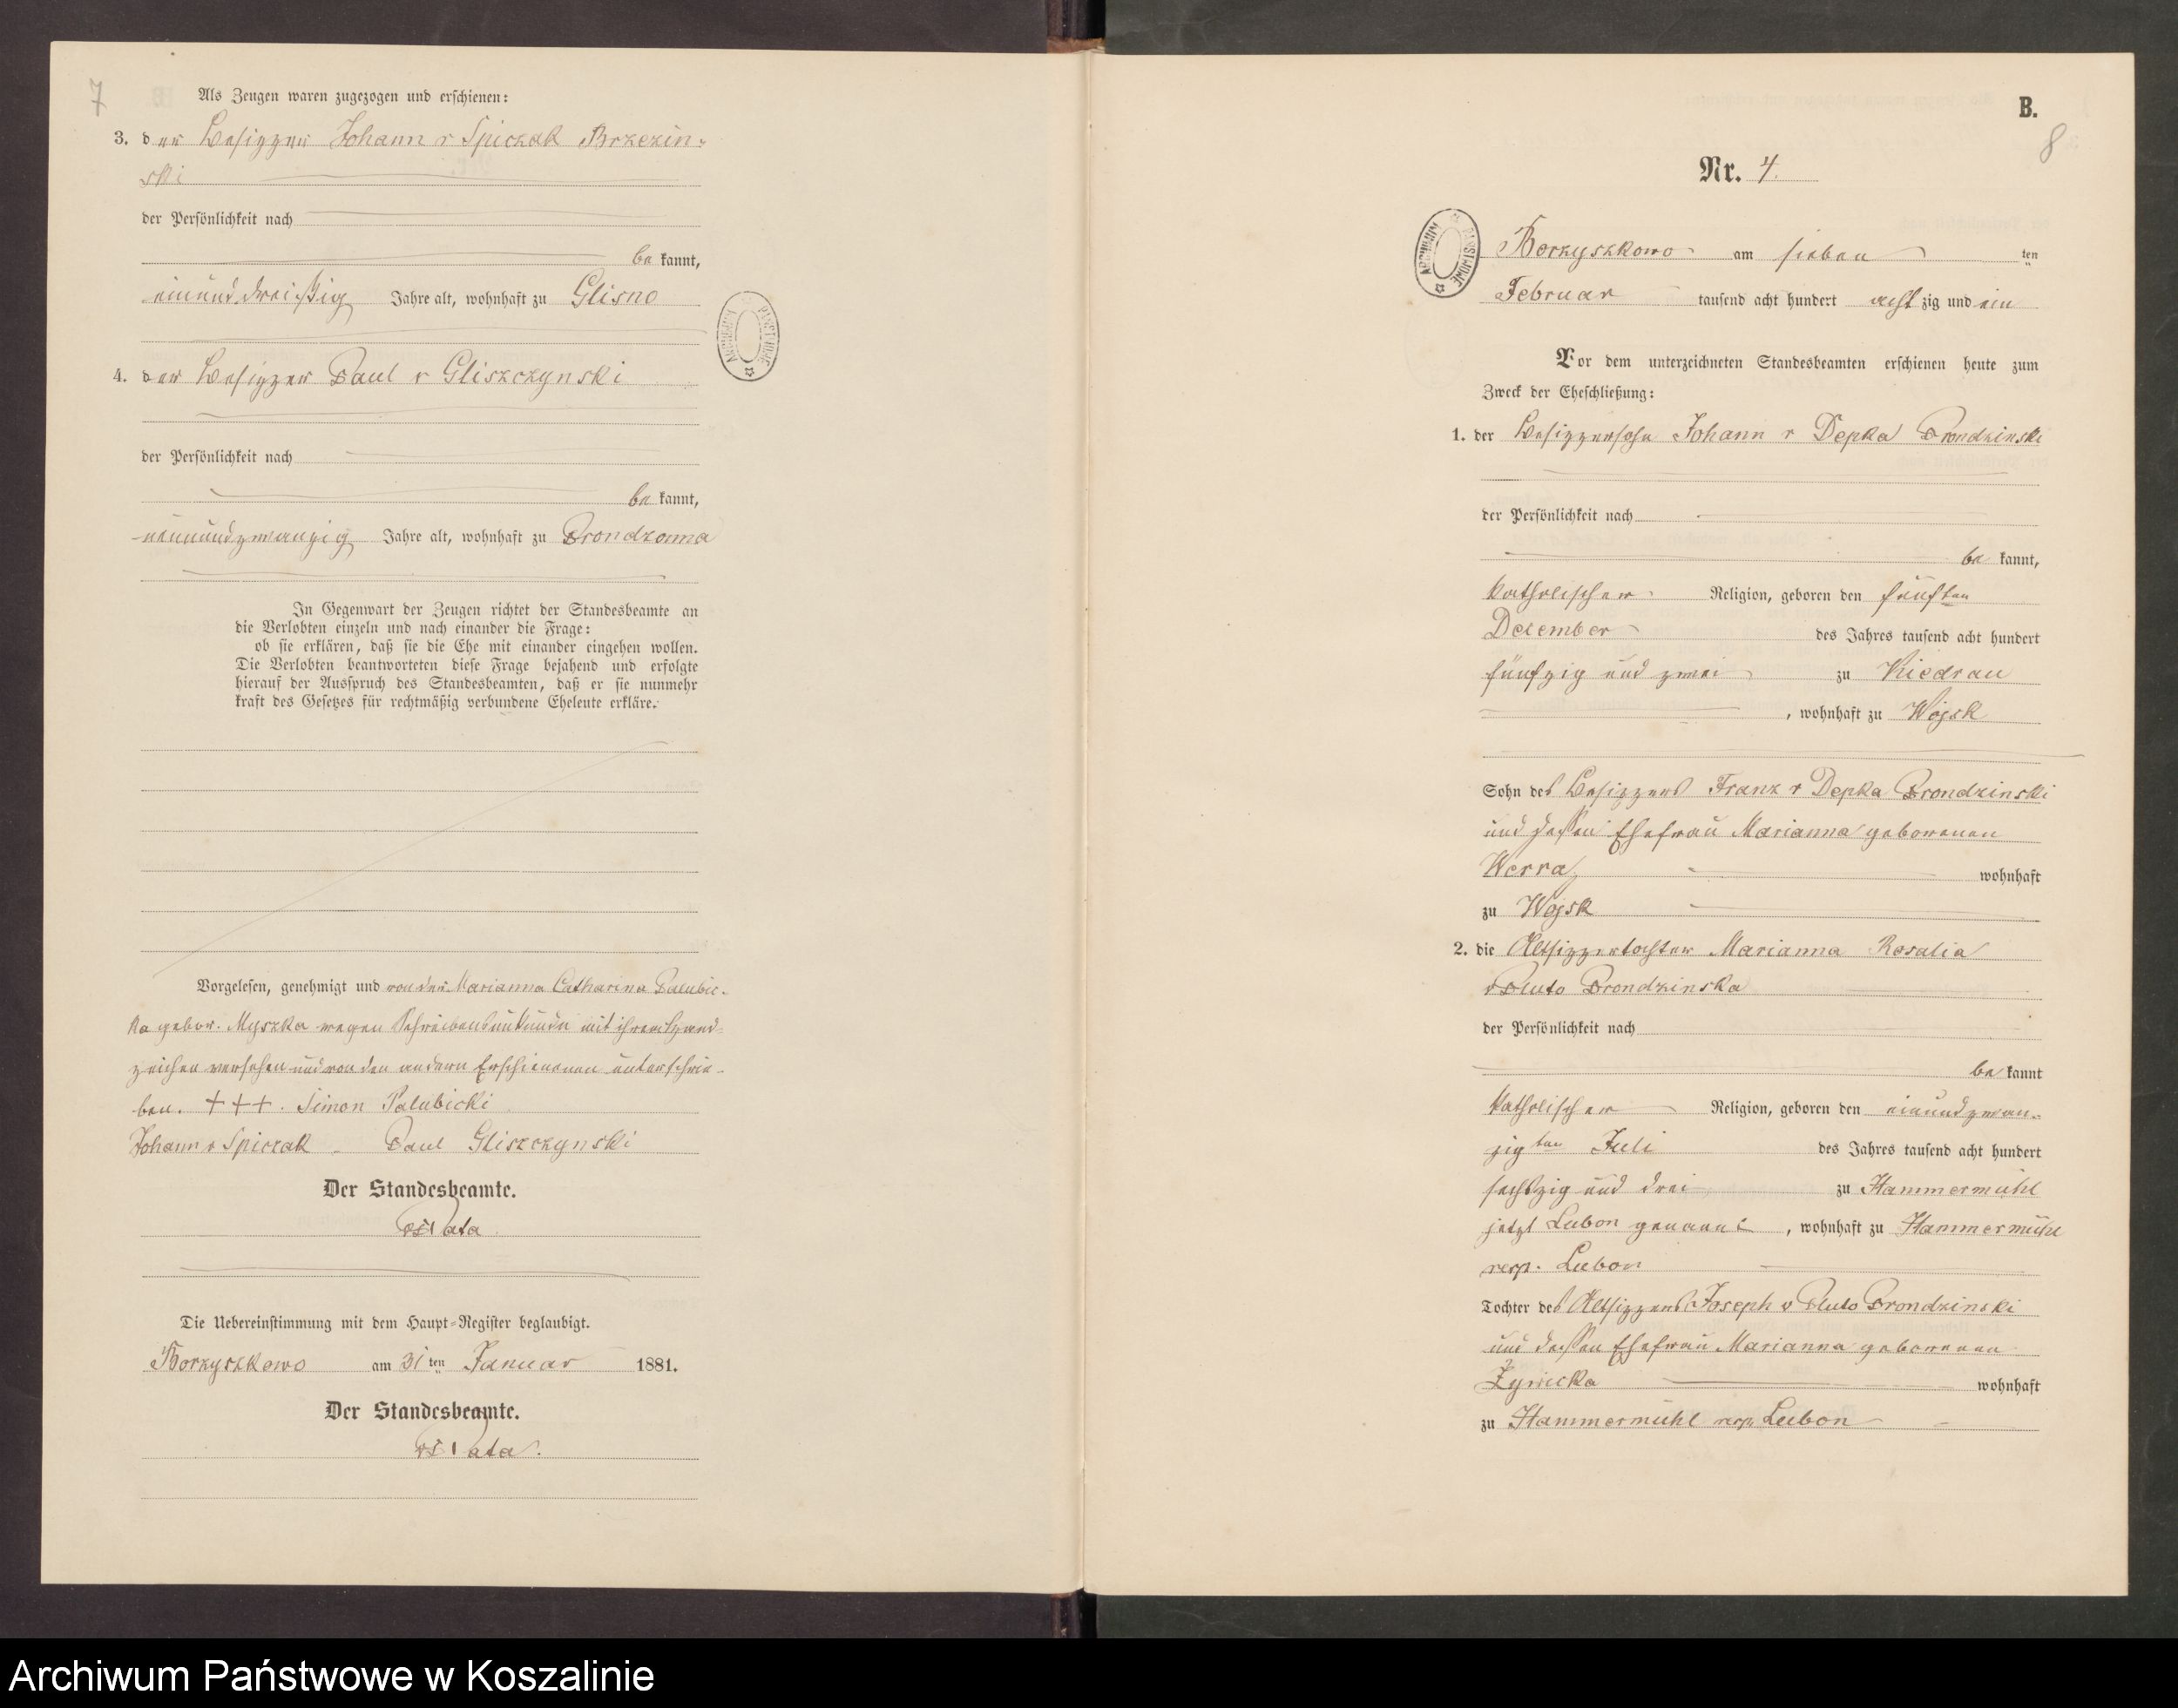 7
Als Zeugen waren zugezogen und erschienen:
3. der Besizzer Johann v Spiczak Brzezin-
ski
der Persönlichkeit nach
be kannt,
einunddreißig Jahre alt, wohnhaft zu Glisno
4. der Besizzer Paul v Gliszczynski
der Persönlichkeit nach
be kannt,
neunundzwanzig Jahre alt, wohnhaft zu Prondzonna
In Gegenwart der Zeugen richtet der Standesbeamte an
die Verlobten einzeln und nach einander die Frage:
ob sie erklären, daß sie die Ehe mit einander eingehen wollen.
Die Verlobten beantworteten diese Frage bejahend und erfolgte
hierauf der Ausspruch des Standesbeamten, daß er sie nunmehr
kraft des Gesetzes für rechtmäßig verbundene Eheleute erkläre.
Vorgelesen, genehmigt und von der Marianna Catharina Palubic-
ka gebor. Myszka wegen Schreibensunkunde mit ihrem Hand-
zeichen versehen und von den andern Erschienenen unterschrie-
ben. +++. Simon Palubicki
Johann v Spiczak Paul Gliszczynski
Der Standesbeamte.
Die Uebereinstimmung mit dem Haupt-Register beglaubigt.
Borzyszkowo am 31 ten Januar 1881.
Der Standesbeamte.
ARCHIWUM PAŃSTWOWE
B.
8
Nr. 4.
ARCHIWUM PAŃSTWOWE
Borzyszkowo am sieben ten
Februar tausend acht hundert acht zig und ein
Vor dem unterzeichneten Standesbeamten erschienen heute zum
Zweck der Eheschließung:
1. der Besizzersohn Johann v Depka Prondzinski
der Persönlichkeit nach
be kannt,
katholischer Religion, geboren den fünften
December des Jahres tausend acht hundert
fünfzig und zwei zu Kiedrau
, wohnhaft zu Wojsk
Sohn des Besizzers Franz v Depka Prondzinski
und dessen Ehefrau Marianna geborenen
Werra wohnhaft
zu Wojsk
2. die Altsizzertochter Marianna Rosalia
v Pluto Prondzinska
der Persönlichkeit nach
be kannt
katholischer Religion, geboren den einundzwan-
zigten Juli des Jahres tausend acht hundert
sechszig und drei zu Hammermühl
jetzt Lubon genannt, wohnhaft zu Hammermühl
resp. Lubon
Tochter des Altsizzers Joseph v Pluto Prondzinski
und dessen Ehefrau Marianna geborenen
Zywicka wohnhaft
zu Hammermühl resp. Lubon
Archiwum Państwowe w Koszalinie